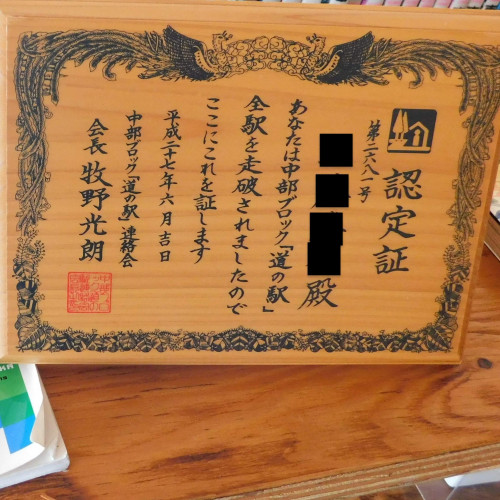 認定証
第二六八一号
殿
あなたは中部ブロック「道の駅」
全駅を走破されましたので
ここにこれを証します
平成二十七年六月吉日
中部ブロック「道の駅」連絡会
会長 牧野光朗